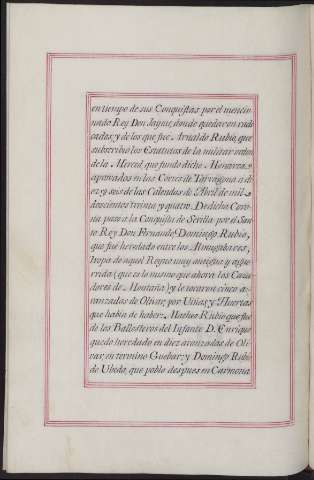 en tiempo de sus Conquistas por el mencio-
nado Rey Don Jayme, donde quedaron radi-
cadas, y de los que fue Arnaldo Rubio, que
subscribio los Estatutos de la militar orden
de la Merced, que fundó dicho Monarca, y
aprovados en las Cortes de Tarragona a di-
ez y seis de las Calendas de Abril de mil
doscientos treinta y quatro. De dicha Coro-
nia paso a la Conquista de Sevilla por el San-
to Rey Don Fernando, Domingo Rubio,
que fue heredado entre los Almugabares,
tropa de aquel Reyno muy antigua y ague-
rrida (que es lo mismo que ahora los Caza-
dores de Montaña) y le tocaron cinco a-
ranzadas de Olivar, por Viñas, y Huertas
que habia de haber. Matheo Rubio que fue
de los Ballesteros del Infante D. Enrique
quedo heredado en diez aranzadas de Oli-
var, en termino Guebar; y Domingo Rubio
de Ubeda, que poblo despues en Carmona